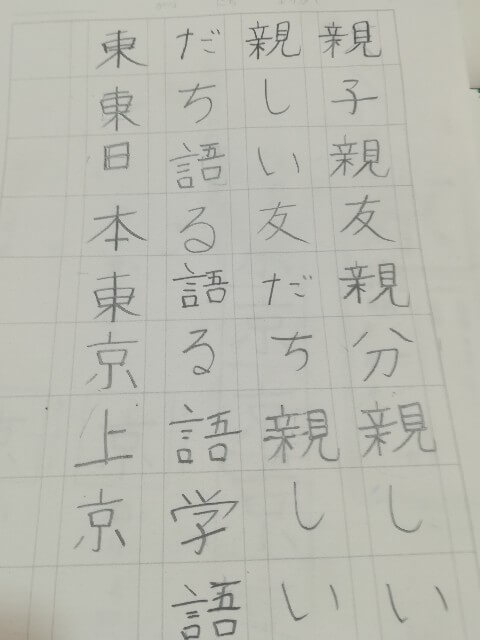 親子親友親分親しい
親しい友だち親しい
だち語る語る語学語
東東日本東京上京